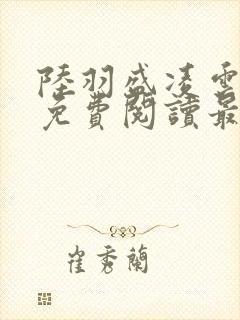 陸羽盛凌雲
免費閱讀最
崔秀蘭